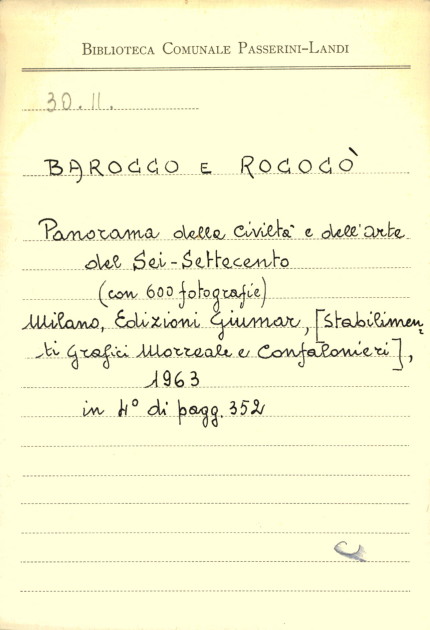 BIBLIOTECA COMUNALE PASSERINI-LANDI
30.11.
BAROCCO E ROCOCÒ
Panorama della civiltà e dell'arte
del Sei-Settecento
(con 600 fotografie)
Milano, Edizioni Giumar, [Stabilimen-
ti Grafici Morreale e Confalonieri],
1963
in 4° di pagg. 352